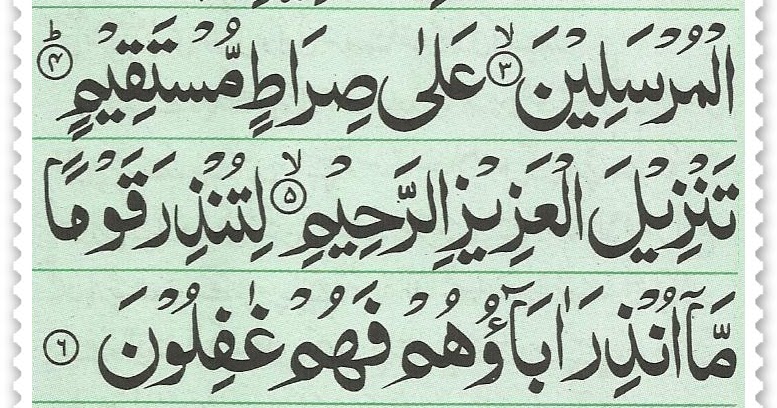 الْمُرْسَلِيْنَ ۙ﴿۳﴾ عَلٰى صِرَاطٍ مُّسْتَقِيْمٍ ؕ﴿۴﴾
تَنْزِيْلَ الْعَزِيْزِ الرَّحِيْمِ ۙ﴿۵﴾ لِتُنْذِرَ قَوْمًا
مَّاۤ اُنْذِرَ اٰبَآؤُهُمْ فَهُمْ غٰفِلُوْنَ ﴿۶﴾